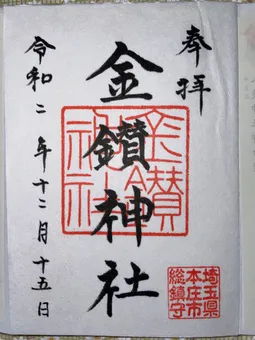 奉拝
金鑚神社
令和二年十二月十五日
金鑚神社
埼玉県
本庄市
総鎮守